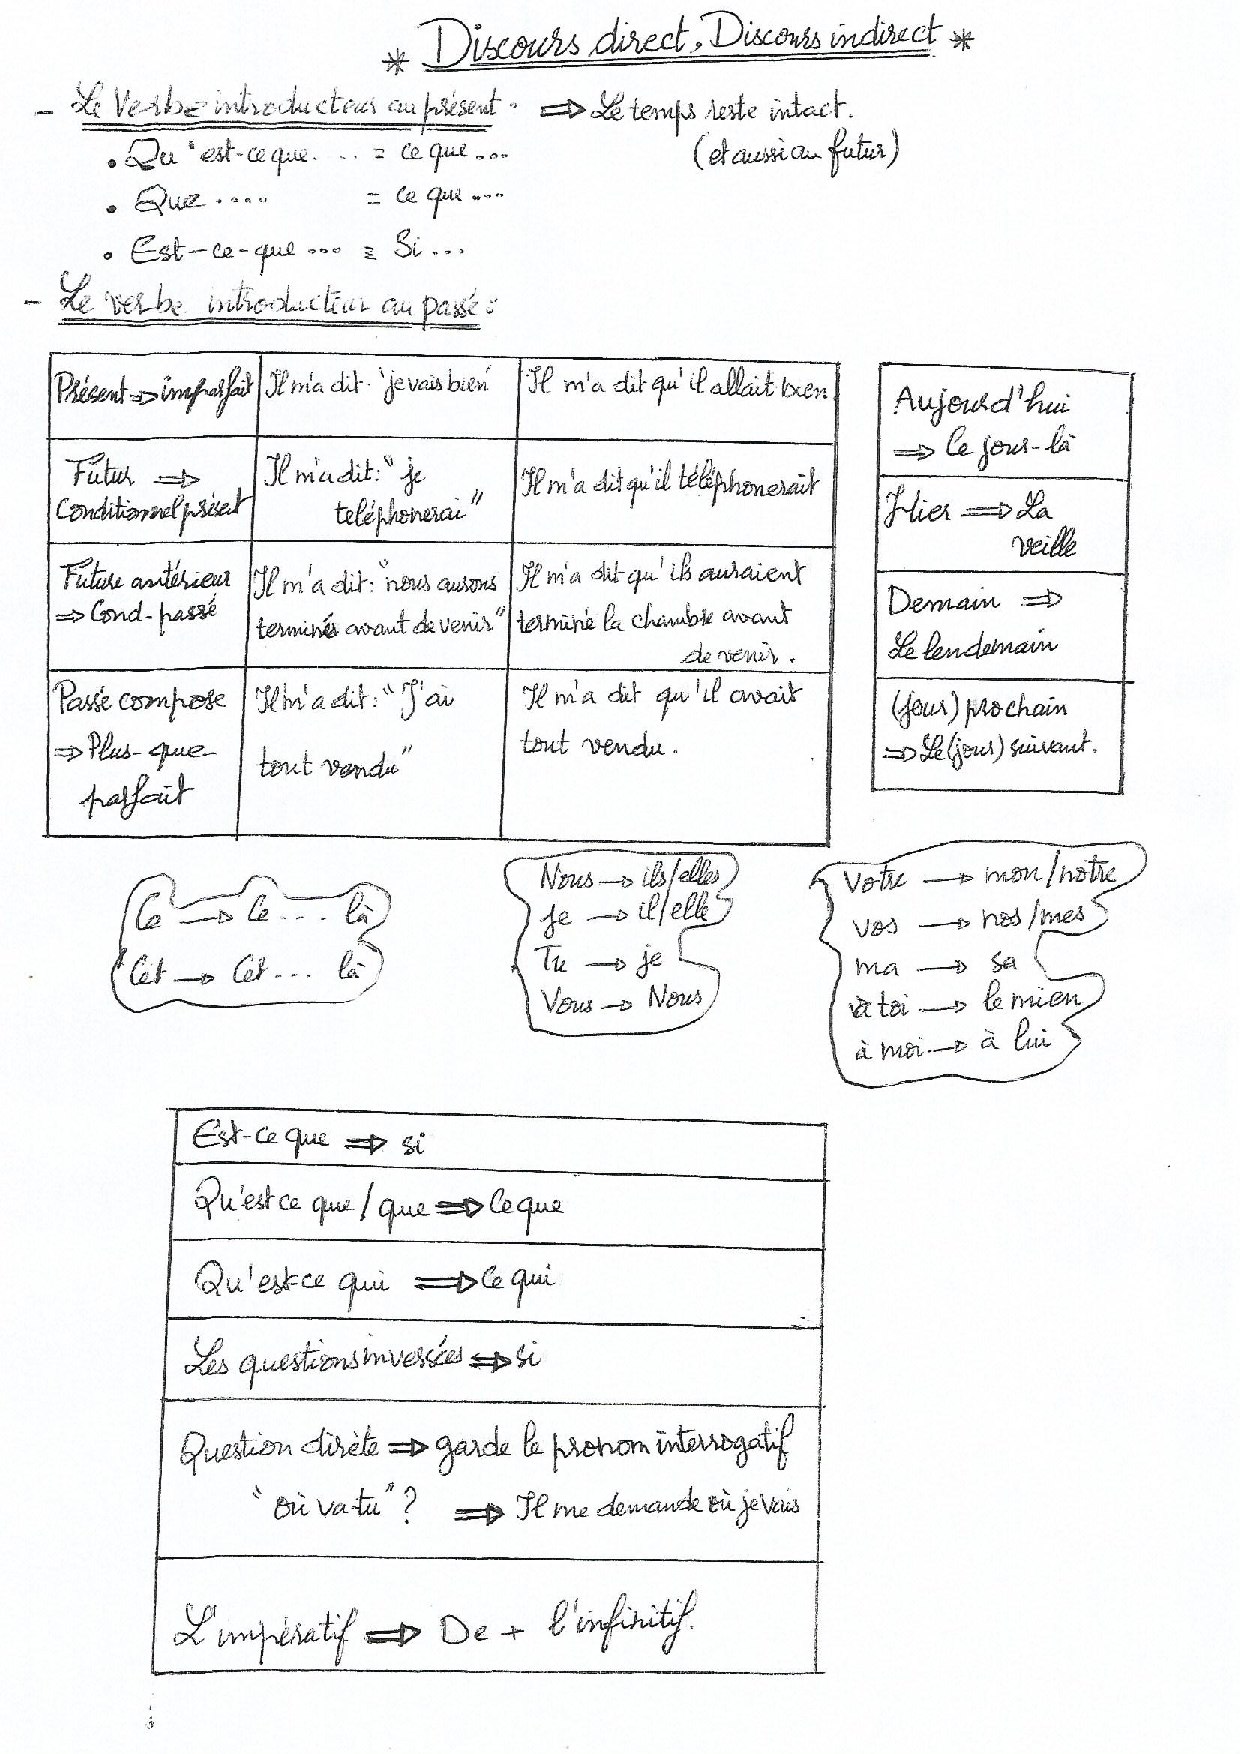 * Discours direct, Discours indirect *
- Le Verbe introducteur au présent. ⇒ Le temps reste intact.
(et aussi au futur)
• Qu'est-ce que.... = ce que...
• Que .... = ce que ....
• Est-ce-que ... = Si ...
- Le verbe introducteur au passé :
Présent ⇒ imparfait
Il m'a dit "je vais bien"
Il m'a dit qu'il allait bien
Futur ⇒
Conditionnel présent
Il m'a dit: "je
teléphonerai"
Il m'a dit qu'il téléphonerait
Future antérieur
⇒ Cond-passé
Il m'a dit: "nous aurons
terminés avant de venir"
Il m'a dit qu'ils auraient
terminé la chambre avant
de venir.
Passé compose
⇒ Plus-que-
parfait
Il m'a dit: "J'ai
tout vendu"
Il m'a dit qu'il avait
tout vendu.
Aujourd'hui
⇒ Ce jour-là
Hier ⇒ La
veille
Demain ⇒
Le lendemain
(jour) prochain
⇒ Le (jour) suivant.
Ce → Ce ... là
Cet → Cet ... là
Nous → ils/elles
je → il/elle
Tu → je
Vous → Nous
Votre → mon/notre
vos → nos/mes
ma → sa
à toi → le mien
à moi → à lui
Est-ce que ⇒ si
Qu'est ce que / que ⇒ Ce que
Qu'est-ce qui ⇒ Ce qui
Les questions inversées ⇒ si
Question dirète ⇒ garde le pronom interrogatif
"où va-tu"? ⇒ Il me demande où je vais
L'impératif ⇒ De + l'infinitif.